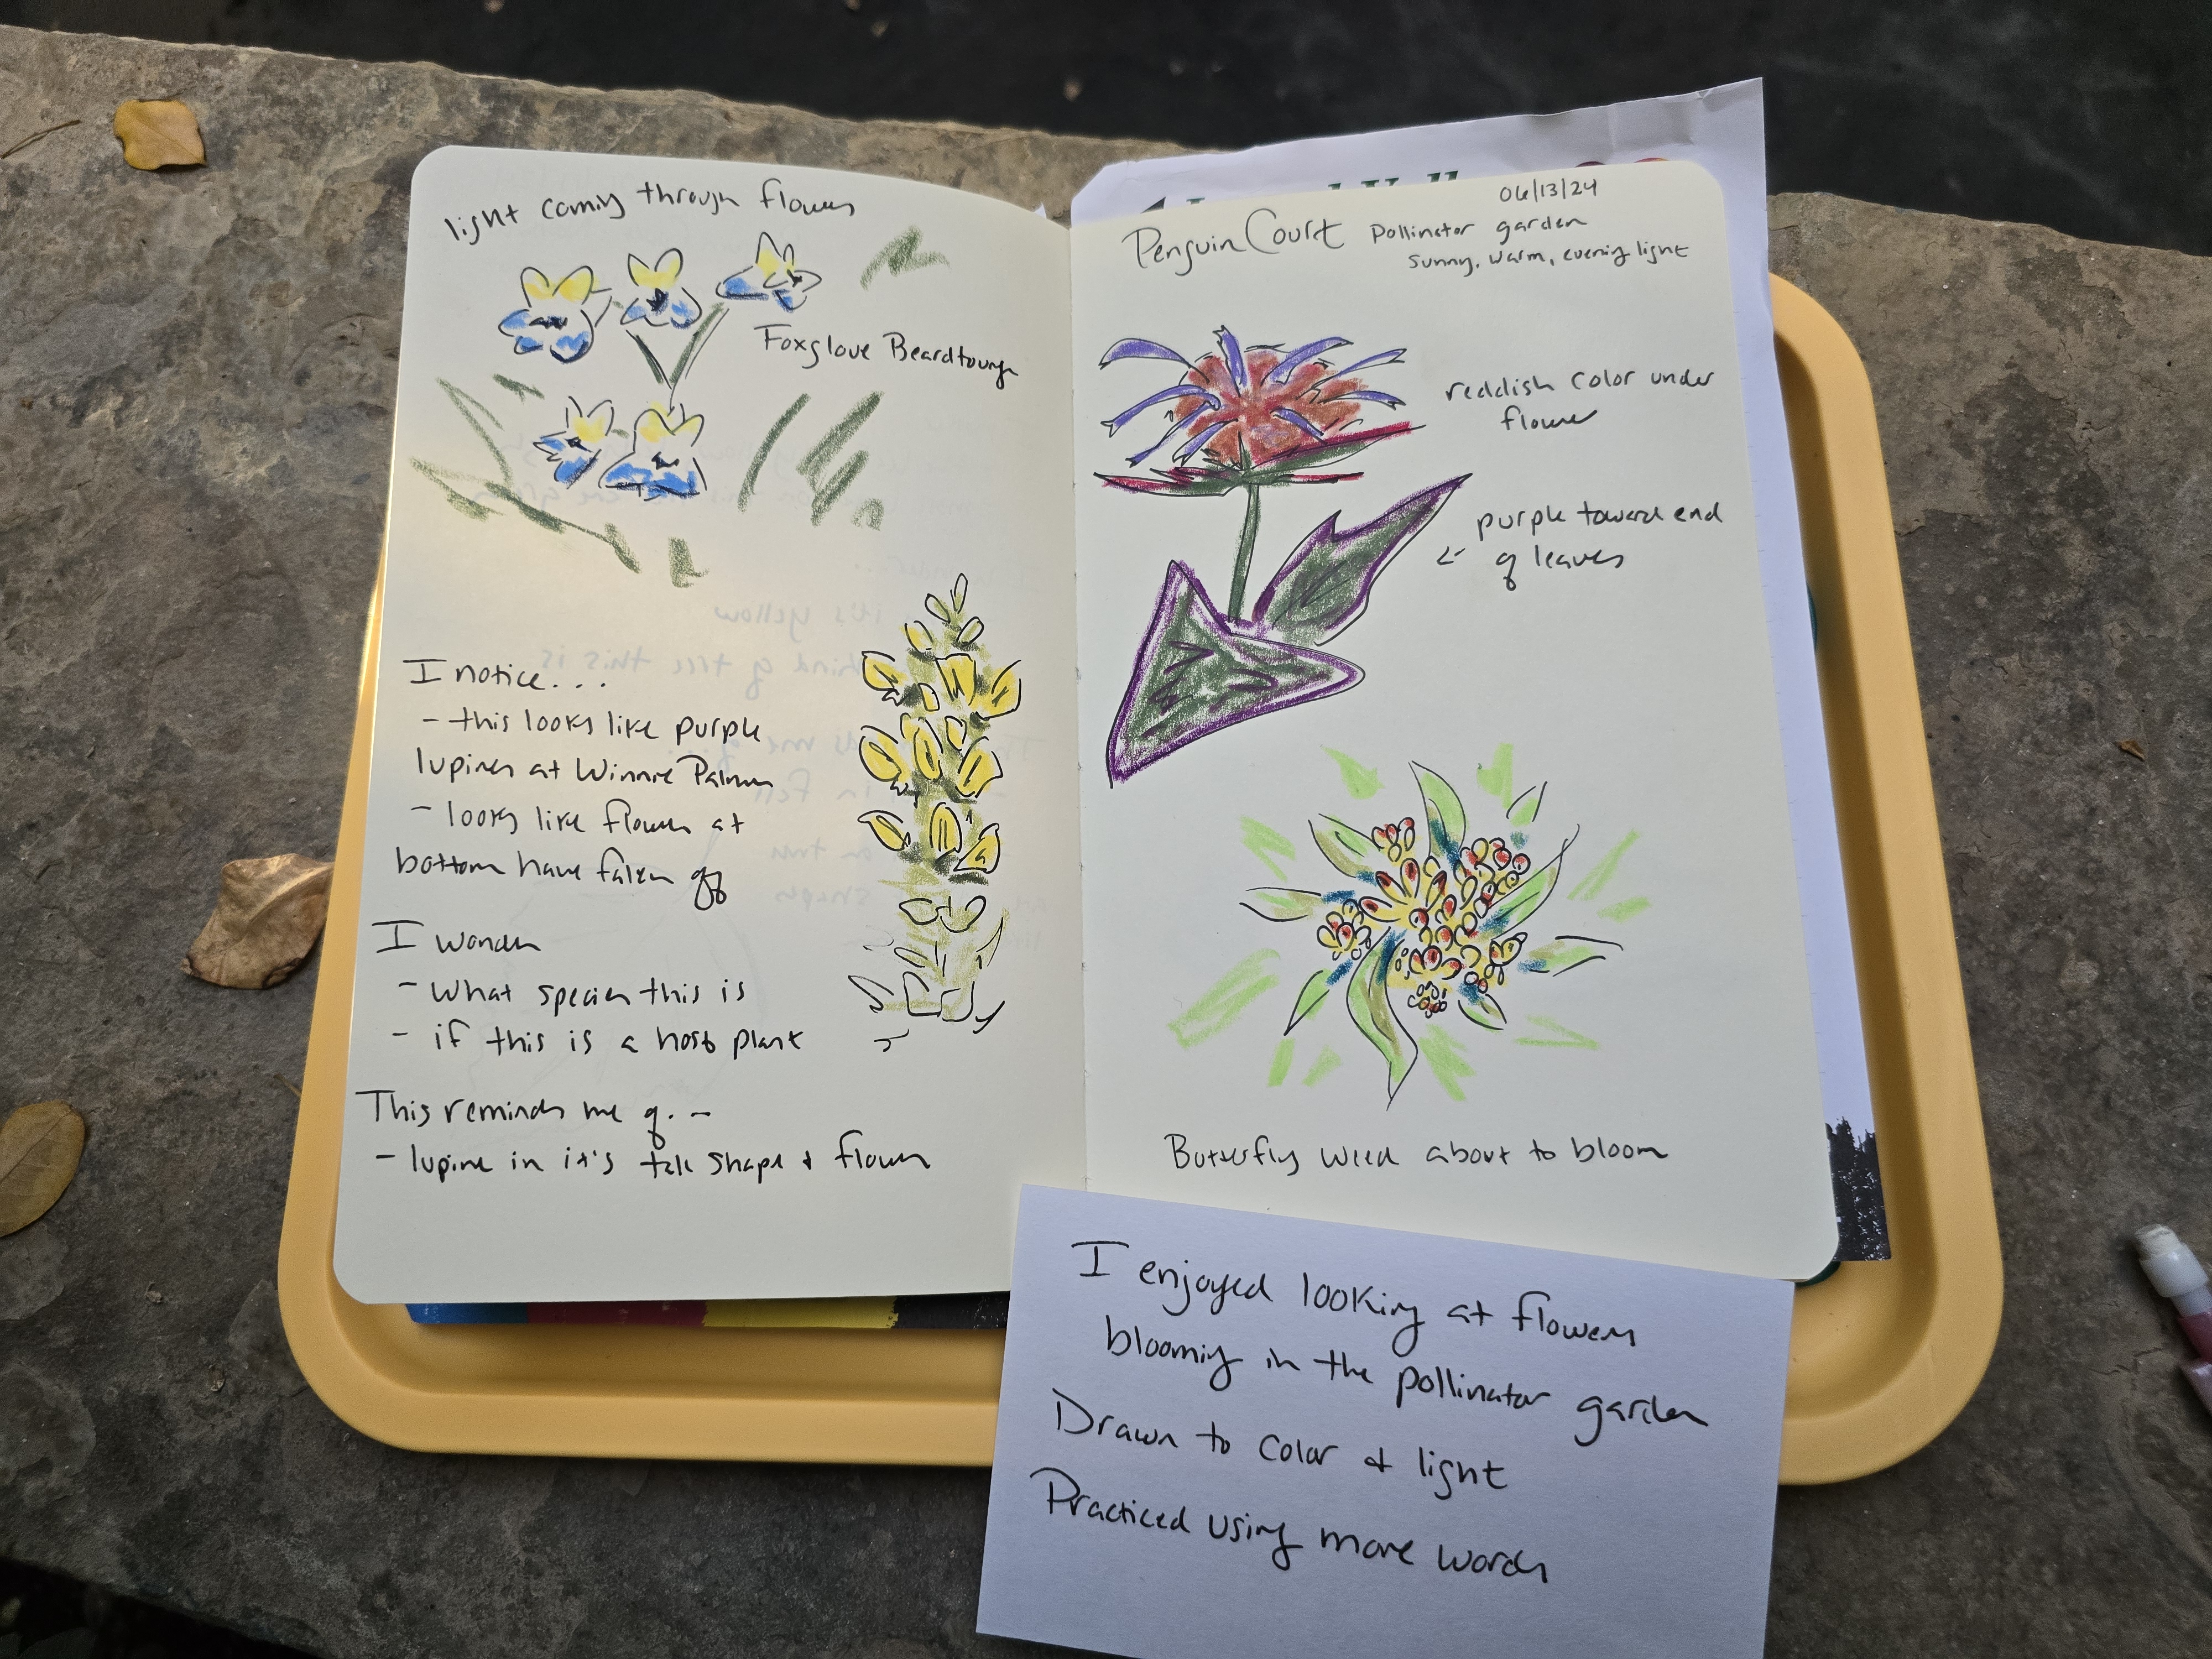 light coming through flowers
Foxglove Beardtoungn
I notice...
- this looks like purple
lupines at Winnie Palmer
- looks like flowers at
bottom have fallen off
I wonder
- What species this is
- if this is a host plant
This reminds me of. -
- lupine in it's tall shape & flower
06/13/24
Penguin Court Pollinator garden
sunny, warm, evening light
reddish color under
flower
purple toward end
← of leaves
Butterfly weed about to bloom
I enjoyed looking at flowers
blooming in the pollinator garden
Drawn to color & light
Practiced using more words